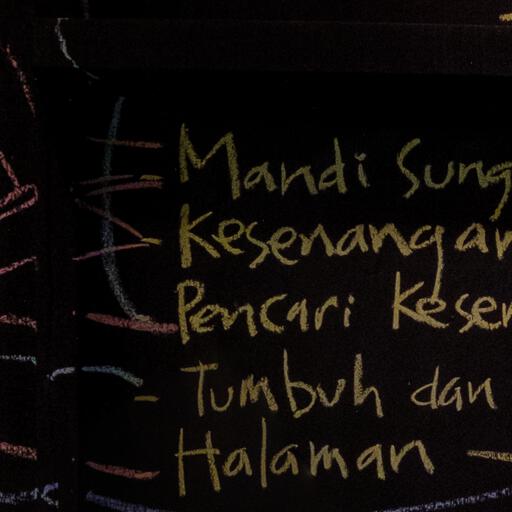 Mandi Sung
Kesenangan
Pencari Kesen
Tumbuh dan
Halaman